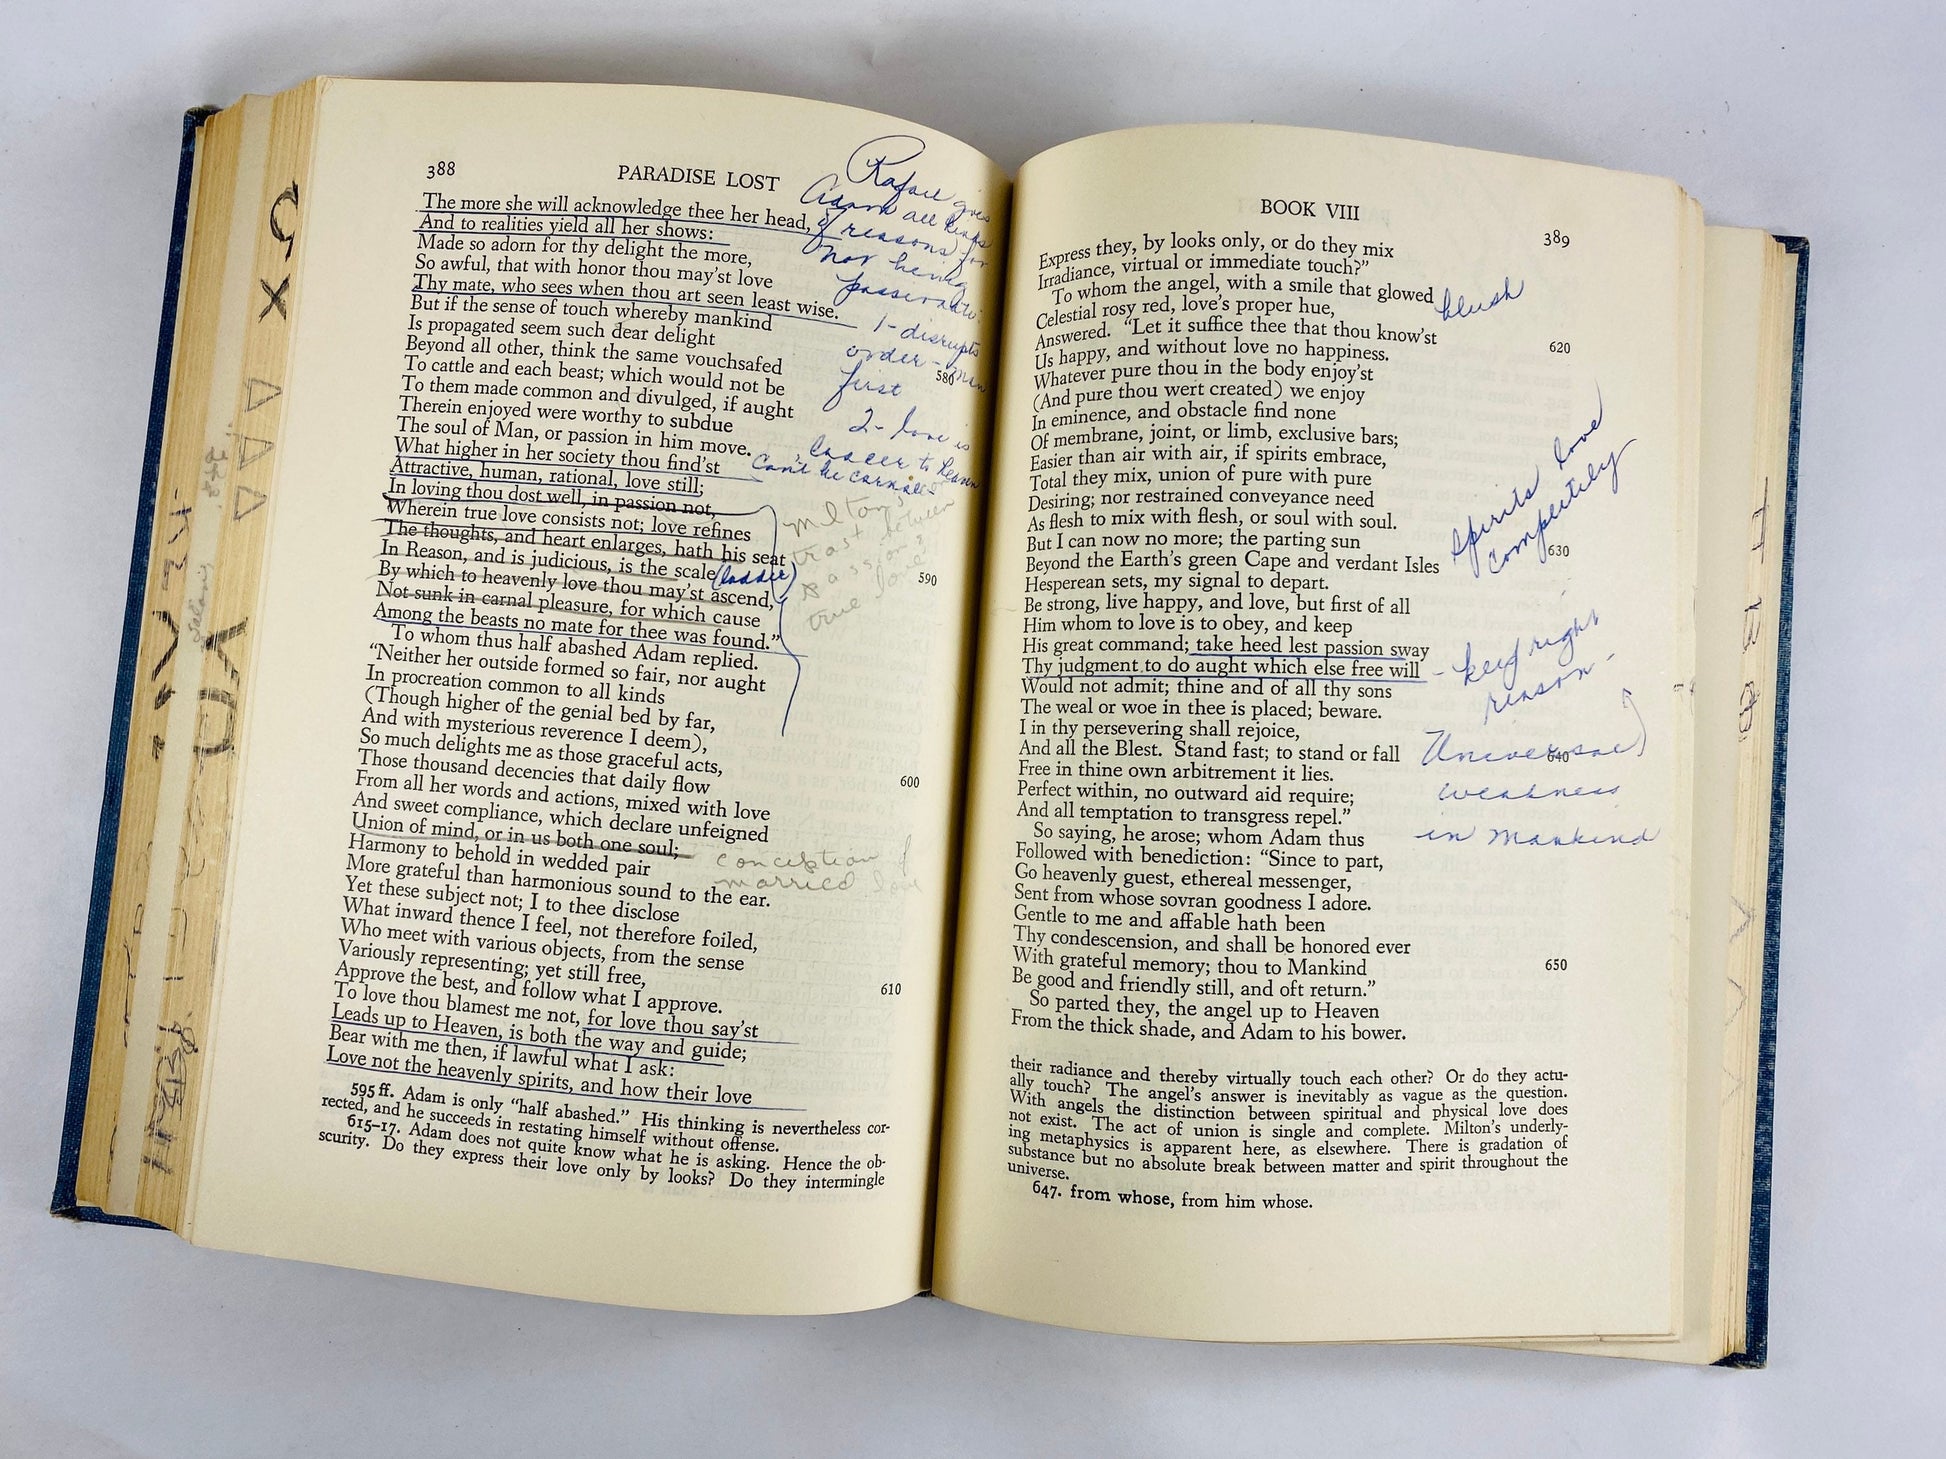 388
PARADISE LOST
The more she will acknowledge thee her head,
And to realities yield all her shows:
Made so adorn for thy delight the more,
So awful, that with honor thou may'st love
Thy mate, who sees when thou art seen least wise.
But if the sense of touch whereby mankind
Is propagated seem such dear delight
Beyond all other, think the same vouchsafed
To cattle and each beast; which would not be
580
To them made common and divulged, if aught
Therein enjoyed were worthy to subdue
The soul of Man, or passion in him move.
What higher in her society thou find'st
Attractive, human, rational, love still;
In loving thou dost well, in passion not,
Wherein true love consists not; love refines
The thoughts, and heart enlarges, hath his seat
In Reason, and is judicious, is the scale (ladder)
590
By which to heavenly love thou may'st ascend,
Not sunk in carnal pleasure, for which cause
Among the beasts no mate for thee was found."
To whom thus half abashed Adam replied.
"Neither her outside formed so fair, nor aught
In procreation common to all kinds
(Though higher of the genial bed by far,
And with mysterious reverence I deem),
So much delights me as those graceful acts,
Those thousand decencies that daily flow
600
From all her words and actions, mixed with love
And sweet compliance, which declare unfeigned
Union of mind, or in us both one soul;
Harmony to behold in wedded pair
More grateful than harmonious sound to the ear.
Yet these subject not; I to thee disclose
What inward thence I feel, not therefore foiled,
Who meet with various objects, from the sense
Variously representing; yet still free,
Approve the best, and follow what I approve.
610
To love thou blamest me not, for love thou say'st
Leads up to Heaven, is both the way and guide;
Bear with me then, if lawful what I ask:
Love not the heavenly spirits, and how their love
595 ff. Adam is only "half abashed." His thinking is nevertheless cor-
rected, and he succeeds in restating himself without offense.
615-17. Adam does not quite know what he is asking. Hence the ob-
scurity. Do they express their love only by looks? Do they intermingle
gives
Adam all kinds
of reasons for
not being
passionate:
1- disrupts
order - man
first
2- love is
ladder to heaven
Can't be carnal
Milton's con
trast between
passion &
true love
conception of
married love
BOOK VIII
389
Express they, by looks only, or do they mix
Irradiance, virtual or immediate touch?"
To whom the angel, with a smile that glowed
Celestial rosy red, love's proper hue,
Answered. "Let it suffice thee that thou know'st
620
Us happy, and without love no happiness.
Whatever pure thou in the body enjoy'st
(And pure thou wert created) we enjoy
In eminence, and obstacle find none
Of membrane, joint, or limb, exclusive bars;
Easier than air with air, if spirits embrace,
Total they mix, union of pure with pure
Desiring; nor restrained conveyance need
As flesh to mix with flesh, or soul with soul.
But I can now no more; the parting sun
630
Beyond the Earth's green Cape and verdant Isles
Hesperean sets, my signal to depart.
Be strong, live happy, and love, but first of all
Him whom to love is to obey, and keep
His great command; take heed lest passion sway
Thy judgment to do aught which else free will
Would not admit; thine and of all thy sons
The weal or woe in thee is placed; beware.
I in thy persevering shall rejoice,
And all the Blest. Stand fast; to stand or fall
640
Free in thine own arbitrement it lies.
Perfect within, no outward aid require;
And all temptation to transgress repel."
So saying, he arose; whom Adam thus
Followed with benediction: "Since to part,
Go heavenly guest, ethereal messenger,
Sent from whose sovran goodness I adore.
Gentle to me and affable hath been
Thy condescension, and shall be honored ever
With grateful memory; thou to Mankind
650
Be good and friendly still, and oft return."
So parted they, the angel up to Heaven
From the thick shade, and Adam to his bower.
their radiance and thereby virtually touch each other? Or do they actu-
ally touch? The angel's answer is inevitably as vague as the question.
With angels the distinction between spiritual and physical love does
not exist. The act of union is single and complete. Milton's underly-
ing metaphysics is apparent here, as elsewhere. There is gradation of
substance but no absolute break between matter and spirit throughout the
universe.
647. from whose, from him whose.
blush
spirits love
completely
- keep right
reason -
Universal
weakness
in mankind